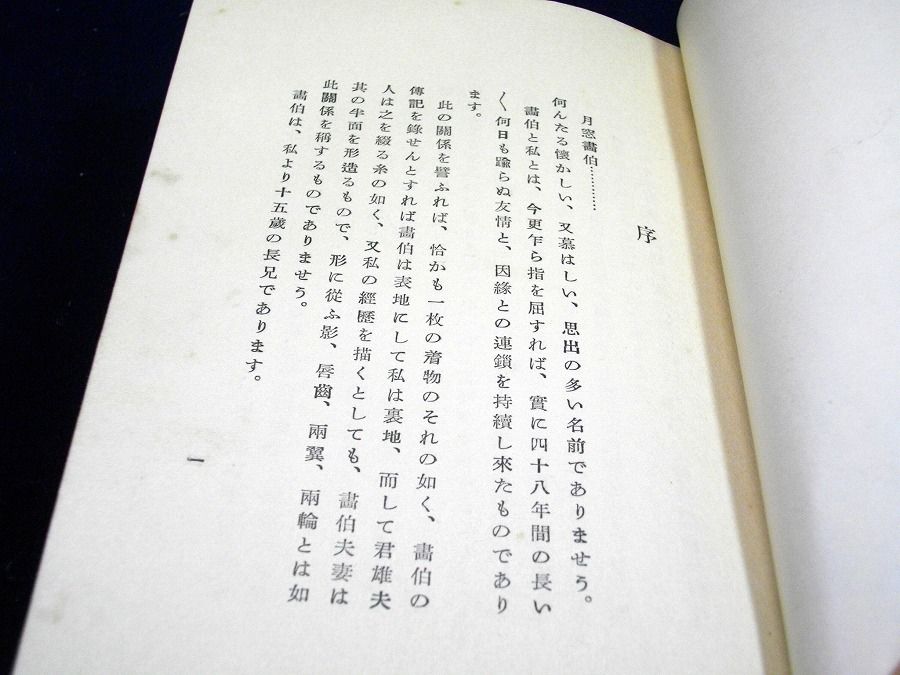 序
月窓畫伯…………
何んたる懷かしい、又慕はしい、思出の多い名前でありませう。
畫伯と私とは、今更乍ら指を屈すれば、實に四十八年間の長い
〱何日も踰らぬ友情と、因緣との連鎖を持續し來たものであり
ます。
此の關係を譬ふれば、恰かも一枚の着物のそれの如く、畫伯の
傳記を錄せんとすれば畫伯は表地にして私は裏地、而して君雄夫
人は之を綴る糸の如く、又私の經歷を描くとしても、畫伯夫妻は
其の半面を形造るもので、形に從ふ影、唇齒、兩翼、兩輪とは如
此關係を稱するものでありませう。
畫伯は、私より十五歲の長兄であります。
一